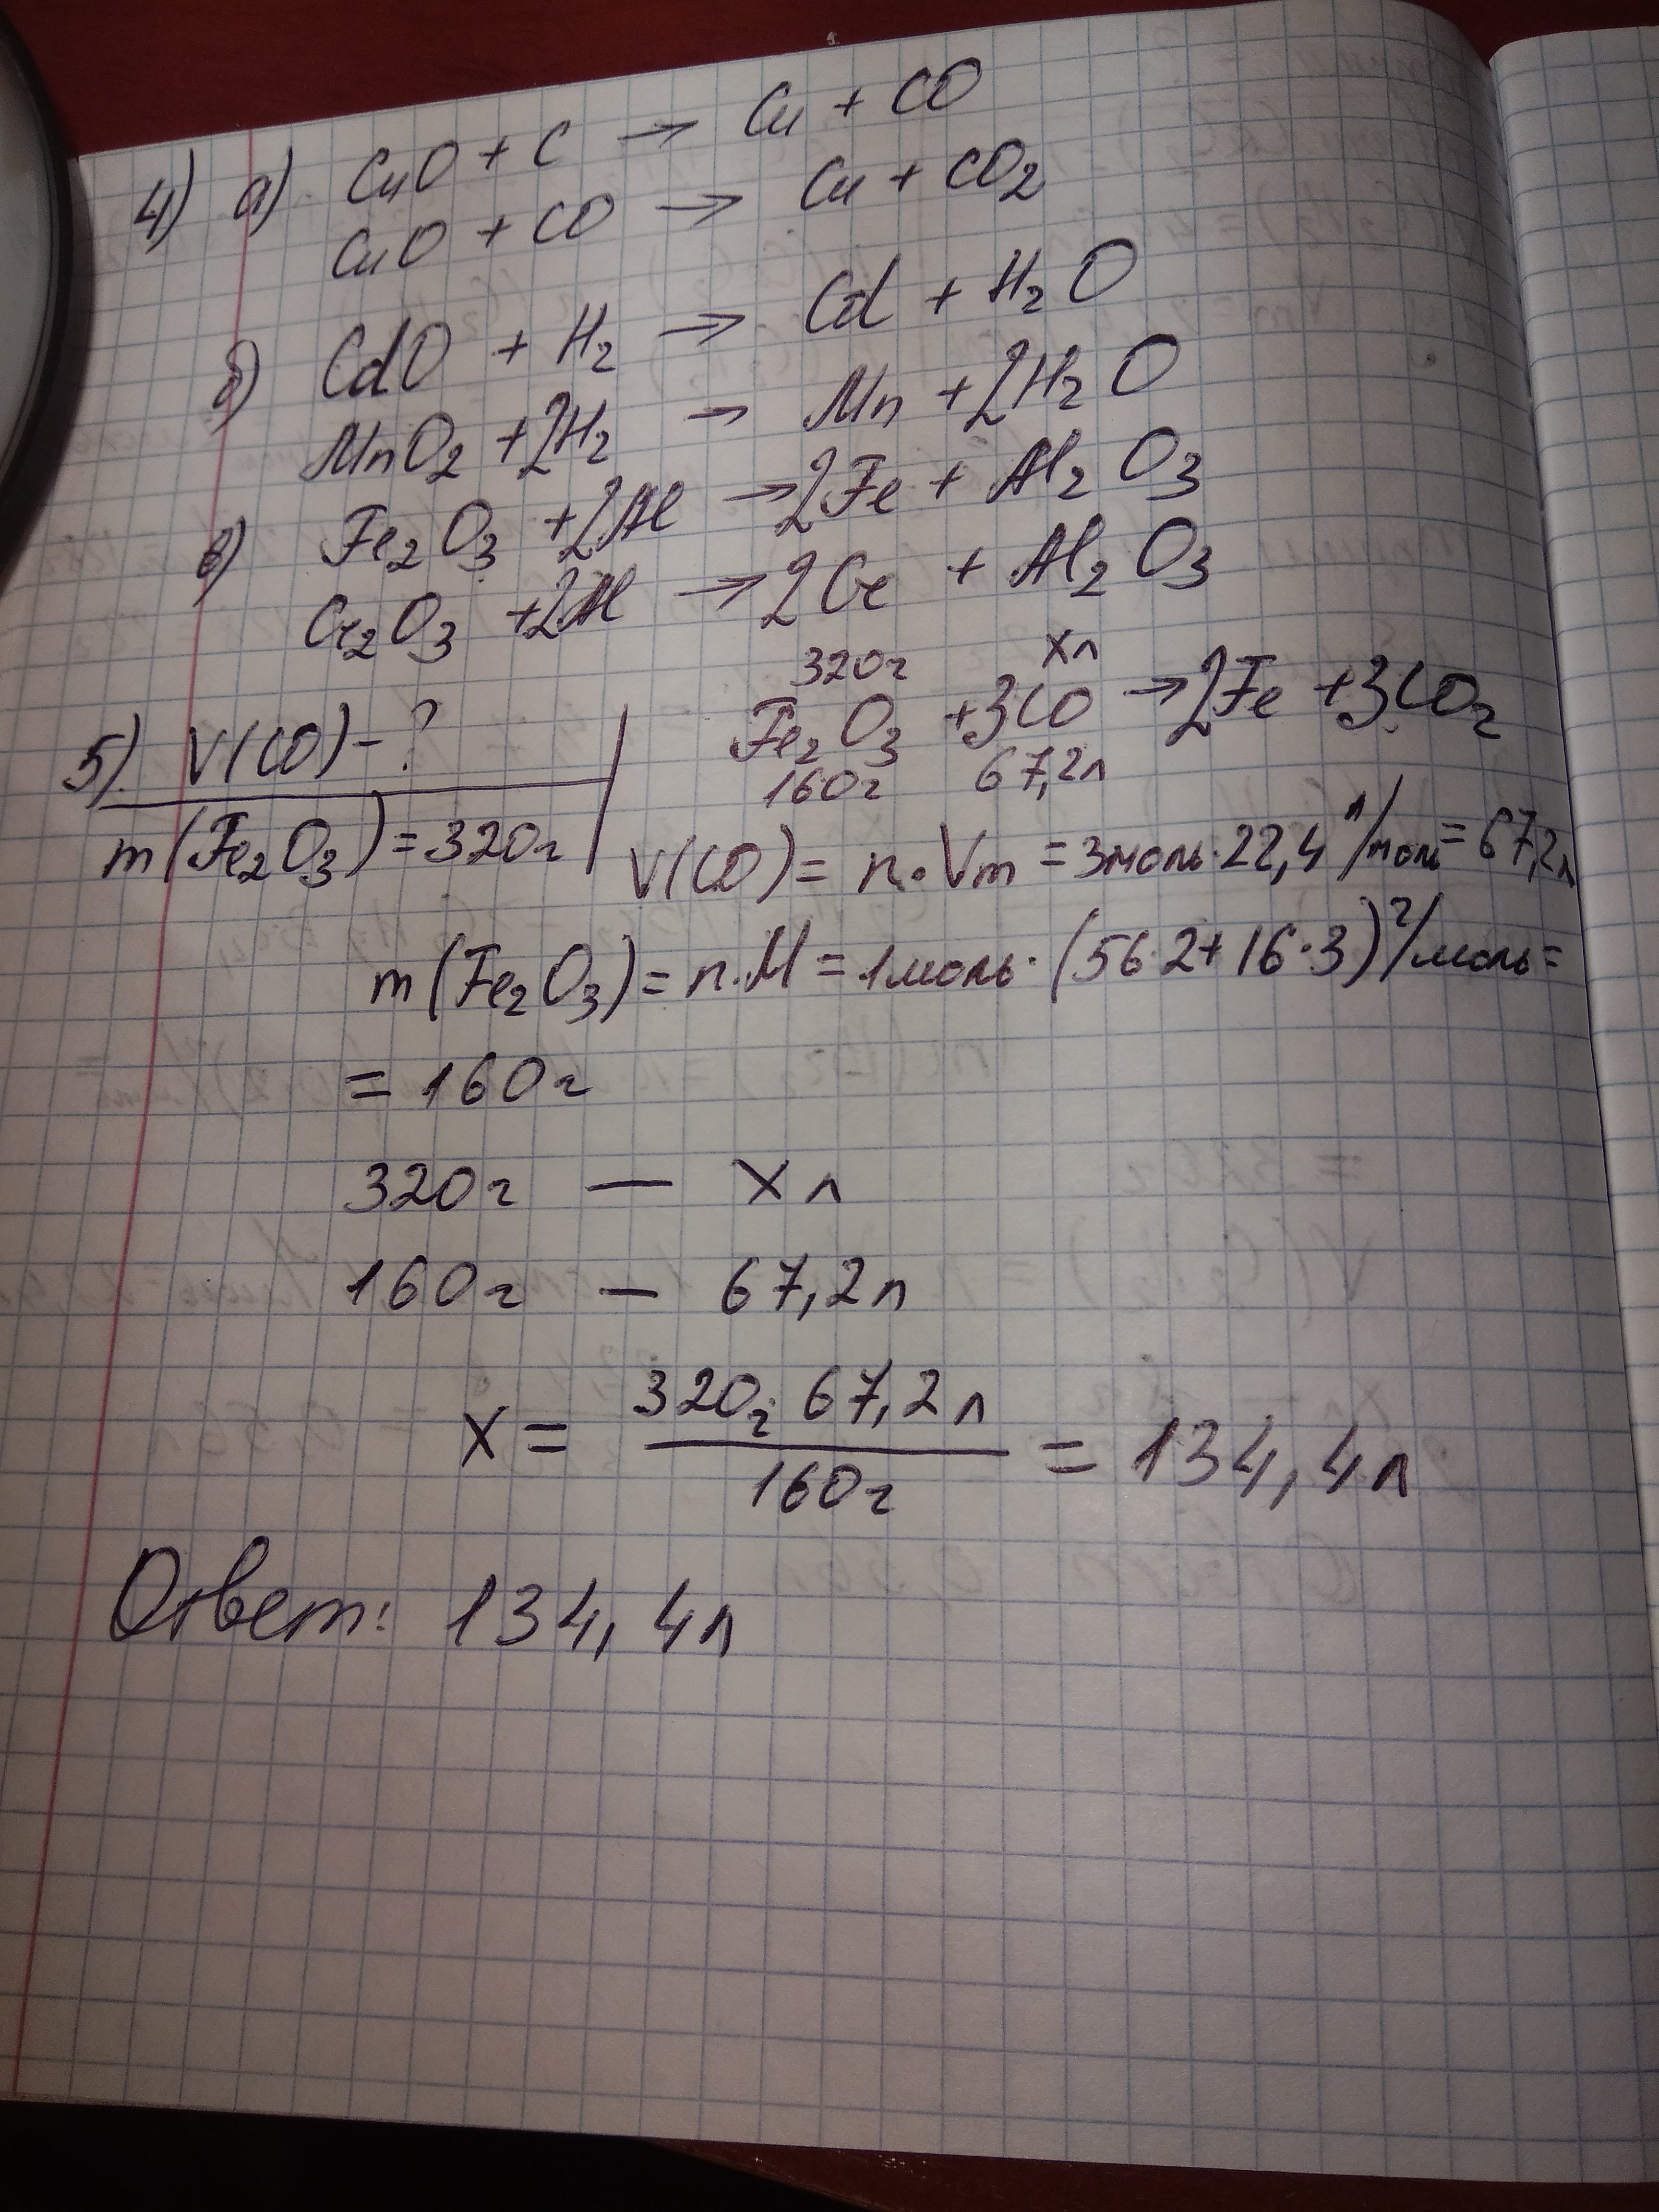 4) а) CuO + C → Cu + CO
CuO + CO → Cu + CO2
б) CdO + H2 → Cd + H2O
MnO2 + 2H2 → Mn + 2H2O
в) Fe2O3 + 2Al → 2Fe + Al2O3
Cr2O3 + 2Al → 2Cr + Al2O3
320г xл
5). V(CO) - ? Fe2O3 + 3CO → 2Fe + 3CO2
160г 67,2л
m(Fe2O3) = 320г V(CO) = n·Vm = 3моль·22,4 л/моль = 67,2л
m(Fe2O3) = n·M = 1моль·(56·2+16·3) г/моль =
= 160г
320г — x л
160г — 67,2л
x = 320г·67,2л / 160г = 134,4л
Ответ: 134,4л